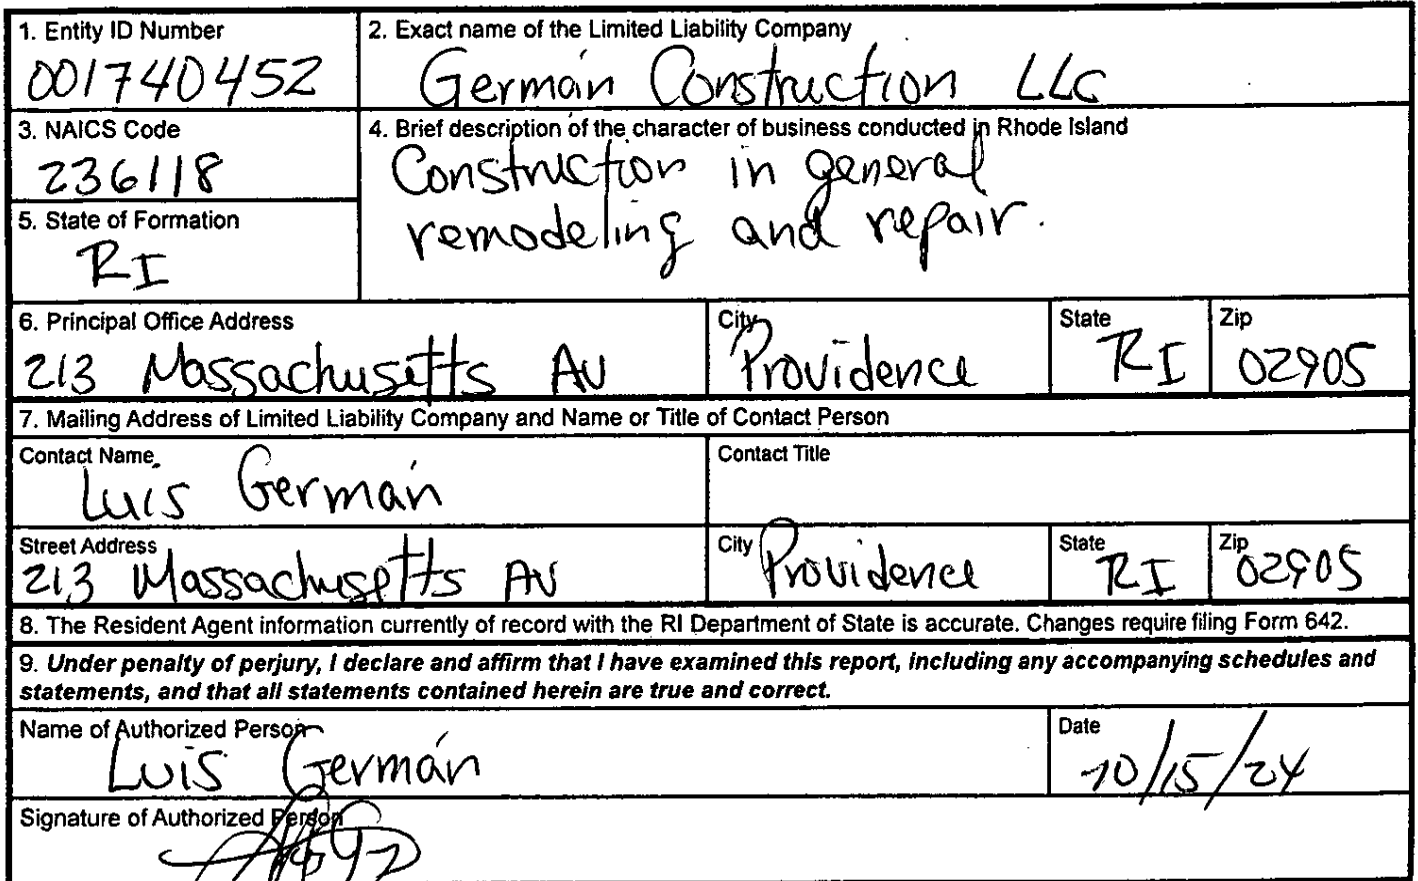 1. Entity ID Number
001740452
2. Exact name of the Limited Liability Company
Germán Construction LLC
3. NAICS Code
236118
4. Brief description of the character of business conducted in Rhode Island
Construction in general
remodeling and repair.
5. State of Formation
RI
6. Principal Office Address
213 Massachusetts Av
City
Providence
State
RI
Zip
02905
7. Mailing Address of Limited Liability Company and Name or Title of Contact Person
Contact Name
Luis Germán
Contact Title
Street Address
213 Massachusetts Av
City
Providence
State
RI
Zip
02905
8. The Resident Agent information currently of record with the RI Department of State is accurate. Changes require filing Form 642.
9. Under penalty of perjury, I declare and affirm that I have examined this report, including any accompanying schedules and
statements, and that all statements contained herein are true and correct.
Name of Authorized Person
Luis Germán
Date
10/15/24
Signature of Authorized Person